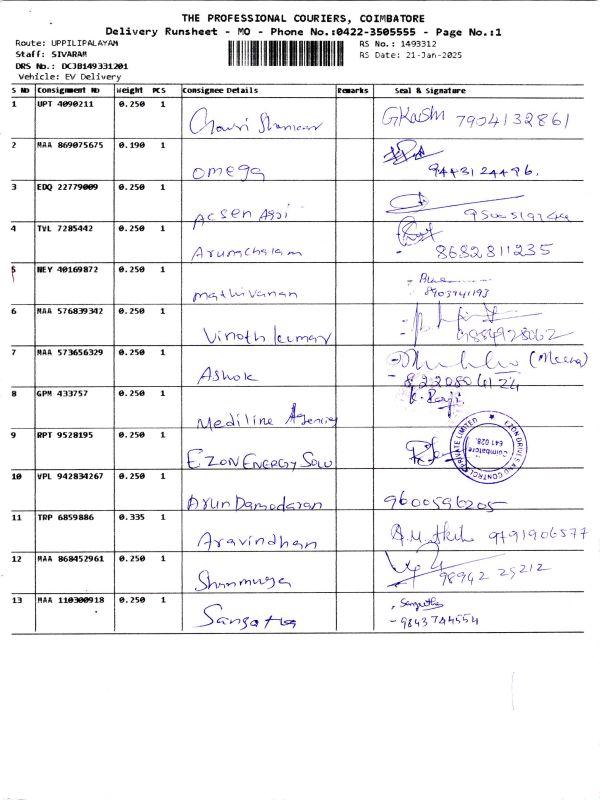 THE PROFESSIONAL COURIERS, COIMBATORE
Delivery Runsheet - MO - Phone No.:0422-3505555 - Page No.:1
Route: UPPILIPALAYAM
RS No.: 1493312
Staff: SIVARAM
RS Date: 21-Jan-2025
DRS No.: DCJB149331201
Vehicle: EV Delivery
S No Consignment No Weight PCS Consignee Details Remarks Seal & Signature
1 UPT 4090211 0.250 1 7904132861
2 MAA 869075675 0.190 1 omega 9443124496.
3 EDQ 22779009 0.250 1
4 TVL 7285442 0.250 1 Arunachalam 8682811235
5 NEY 40169872 0.250 1 mathivanan 8903741193
6 MAA 576839342 0.250 1 Vinoth kumar 9884928062
7 MAA 573656329 0.250 1 Ashok (Meena)
8220804124
8 GPM 433757 0.250 1 Mediline Agency
9 RPT 9528195 0.250 1 EZON ENERGY SOLU
EZON DRIVES AND CONTROLS PRIVATE LIMITED
Coimbatore
641 028.
10 VPL 942834267 0.250 1 Arun Damodaran 9600596205
11 TRP 6859886 0.335 1 Aravindhan 9791906577
12 MAA 868452961 0.250 1 Shanmuga 98942 25212
13 MAA 110300918 0.250 1 Sangetha Sangetha
- 9843744554